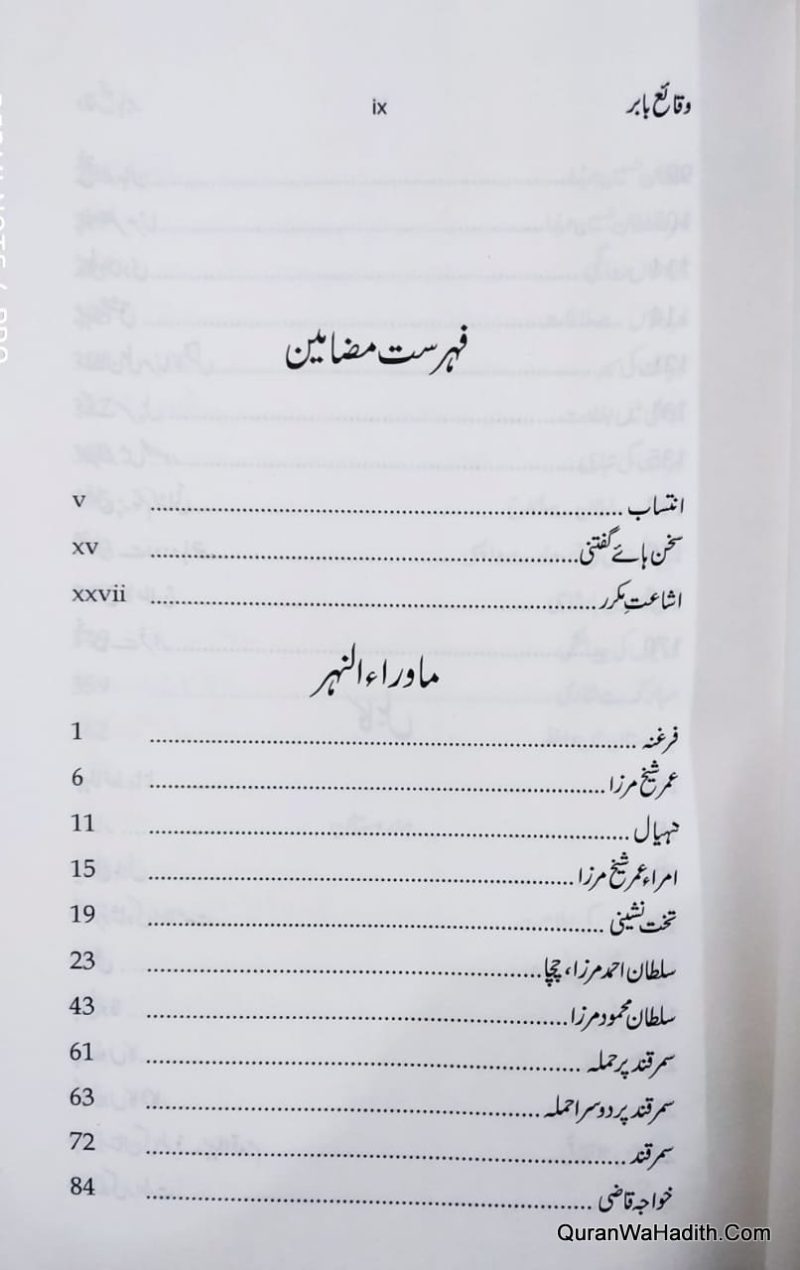 وقائع بابر ix
فہرست مضامین
انتساب ........ v
سخن ہائے گفتنی ........ xv
اشاعتِ مکرر ........ xxvii
ماوراء النہر
فرغنہ ........ 1
عمر شیخ مرزا ........ 6
ننہیال ........ 11
امراء عمر شیخ مرزا ........ 15
تخت نشینی ........ 19
سلطان احمد مرزا، چچا ........ 23
سلطان محمود مرزا ........ 43
سمرقند پر حملہ ........ 61
سمرقند پر دوسرا حملہ ........ 63
سمرقند ........ 72
خواجہ قاضی ........ 84
QuranWaHadith.Com